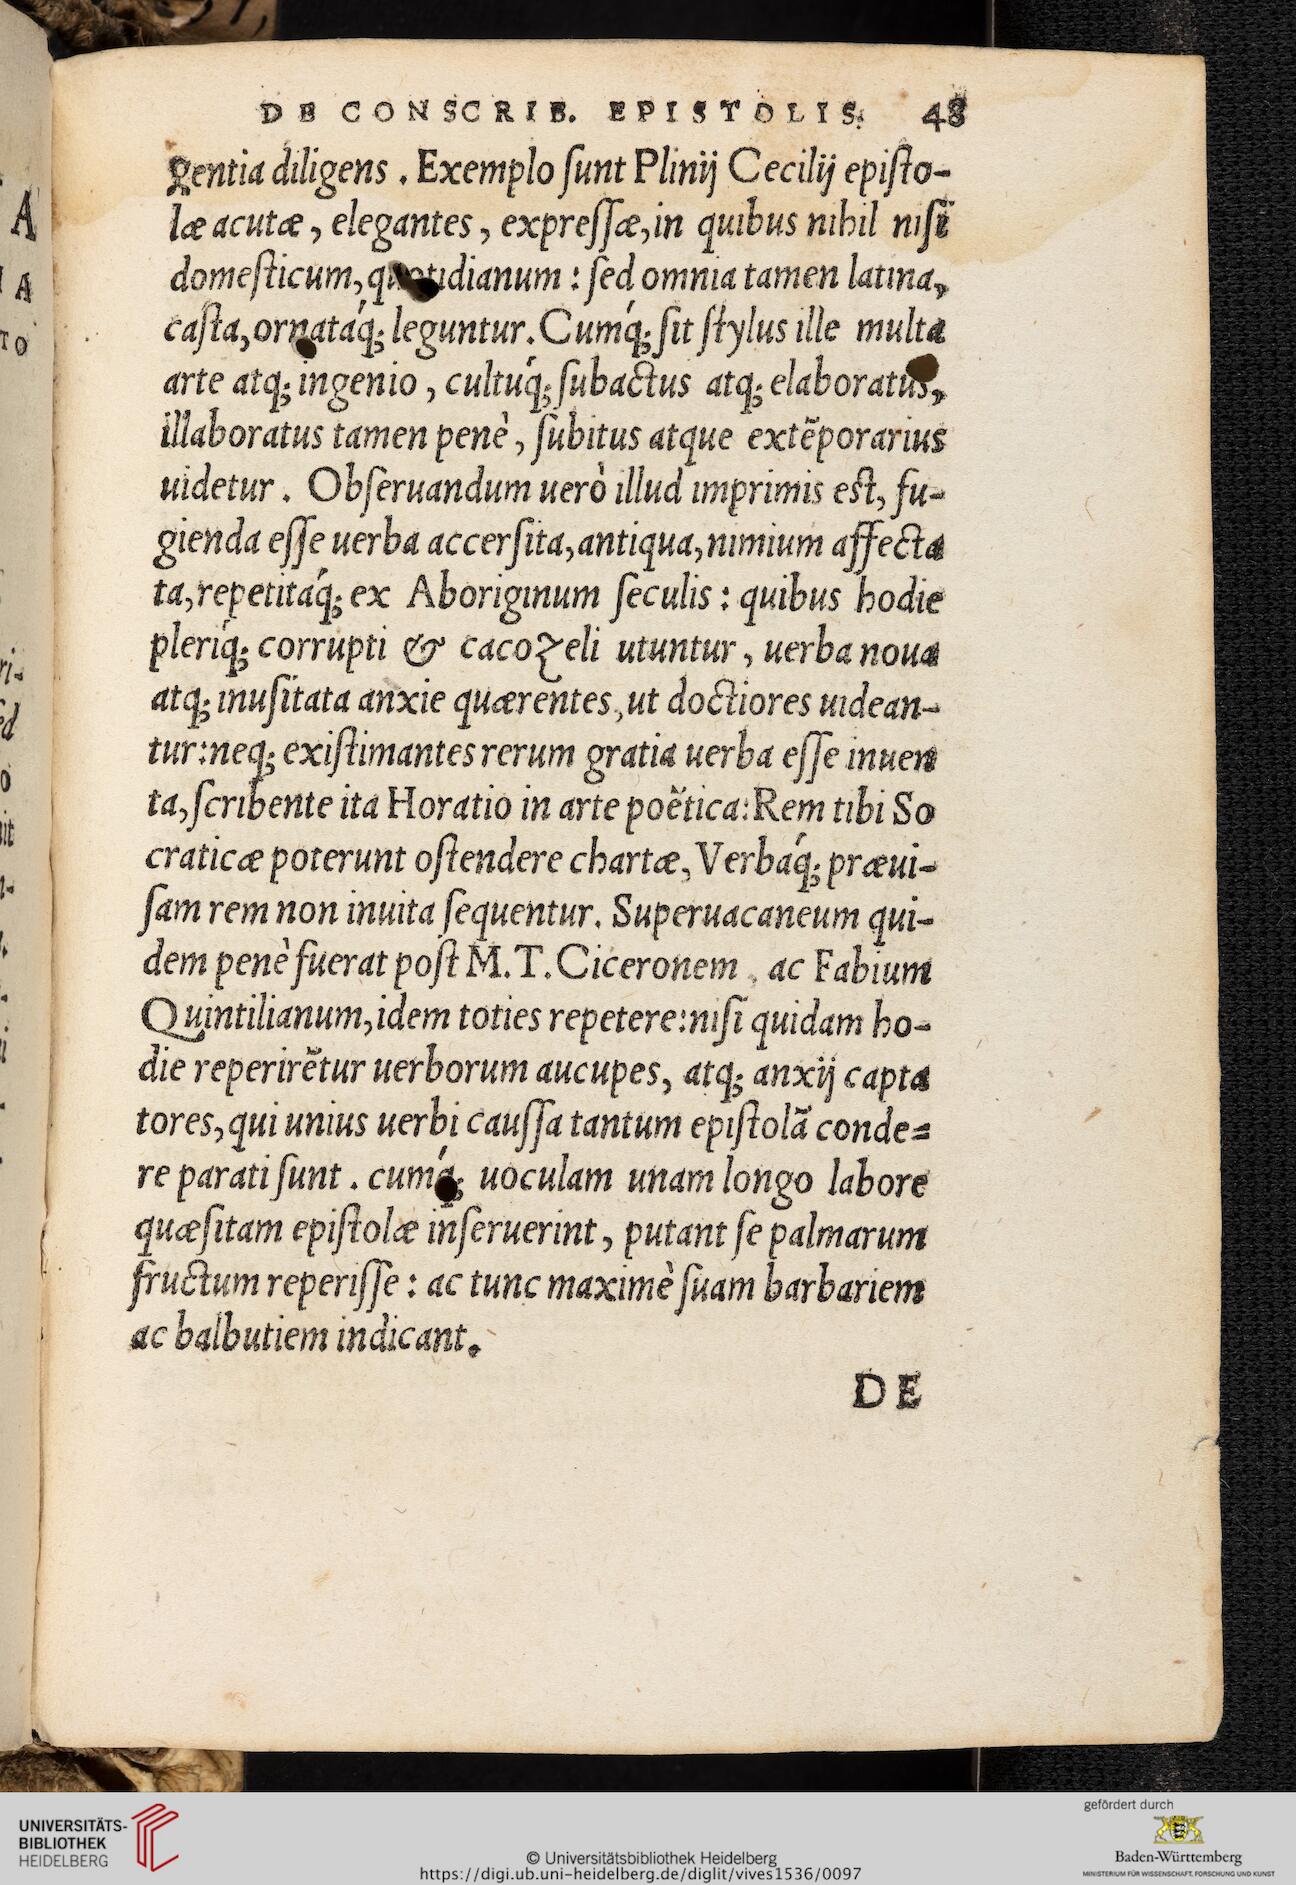 DE CONSCRIB. EPISTOLIS. 48
gentia diligens. Exemplo ſunt Plinij Cecilij epiſto-
læ acutæ, elegantes, expreſſæ, in quibus nihil niſi
domeſticum, quotidianum: ſed omnia tamen latina,
caſta, ornatáq; leguntur. Cumq́; ſit ſtylus ille multa
arte atq; ingenio, cultúq; ſubactus atq; elaboratus,
illaboratus tamen penè, ſubitus atque extẽporarius
uidetur. Obſeruandum uerò illud imprimis eſt, fu-
gienda eſſe uerba accerſita, antiqua, nimium affecta
ta, repetitáq; ex Aboriginum ſeculis: quibus hodie
pleriq́; corrupti & cacozeli utuntur, uerba noua
atq; inuſitata anxie quærentes, ut doctiores uidean-
tur: neq; exiſtimantes rerum gratia uerba eſſe inuen
ta, ſcribente ita Horatio in arte poëtica: Rem tibi So
craticæ poterunt oſtendere chartæ, Verbáq; præui-
ſam rem non inuita ſequentur. Superuacaneum qui-
dem penè fuerat poſt M. T. Ciceronem, ac Fabium
Quintilianum, idem toties repetere: niſi quidam ho-
die reperirẽtur uerborum aucupes, atq; anxij capta
tores, qui unius uerbi cauſſa tantum epiſtolã conde=
re parati ſunt. cumq́; uoculam unam longo labore
quæſitam epiſtolæ inſeruerint, putant ſe palmarum
fructum reperiſſe: ac tunc maximè ſuam barbariem
ac balbutiem indicant.
DE
UNIVERSITÄTS-
BIBLIOTHEK
HEIDELBERG
© Universitätsbibliothek Heidelberg
https://digi.ub.uni-heidelberg.de/diglit/vives1536/0097
gefördert durch
Baden-Württemberg
MINISTERIUM FÜR WISSENSCHAFT, FORSCHUNG UND KUNST